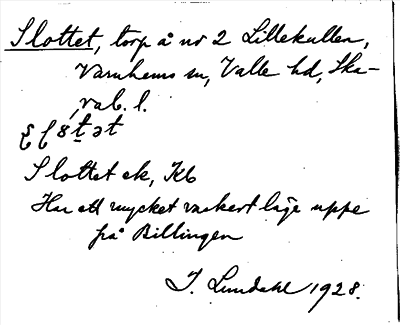 Slottet, torp å nr 2 Lillekullen,
Varnhems sn, Valle hd, Ska-
rab. l.
Slottet ek, Kb
Har ett mycket vackert läge uppe
på Billingen
J. Lundahl 1928.